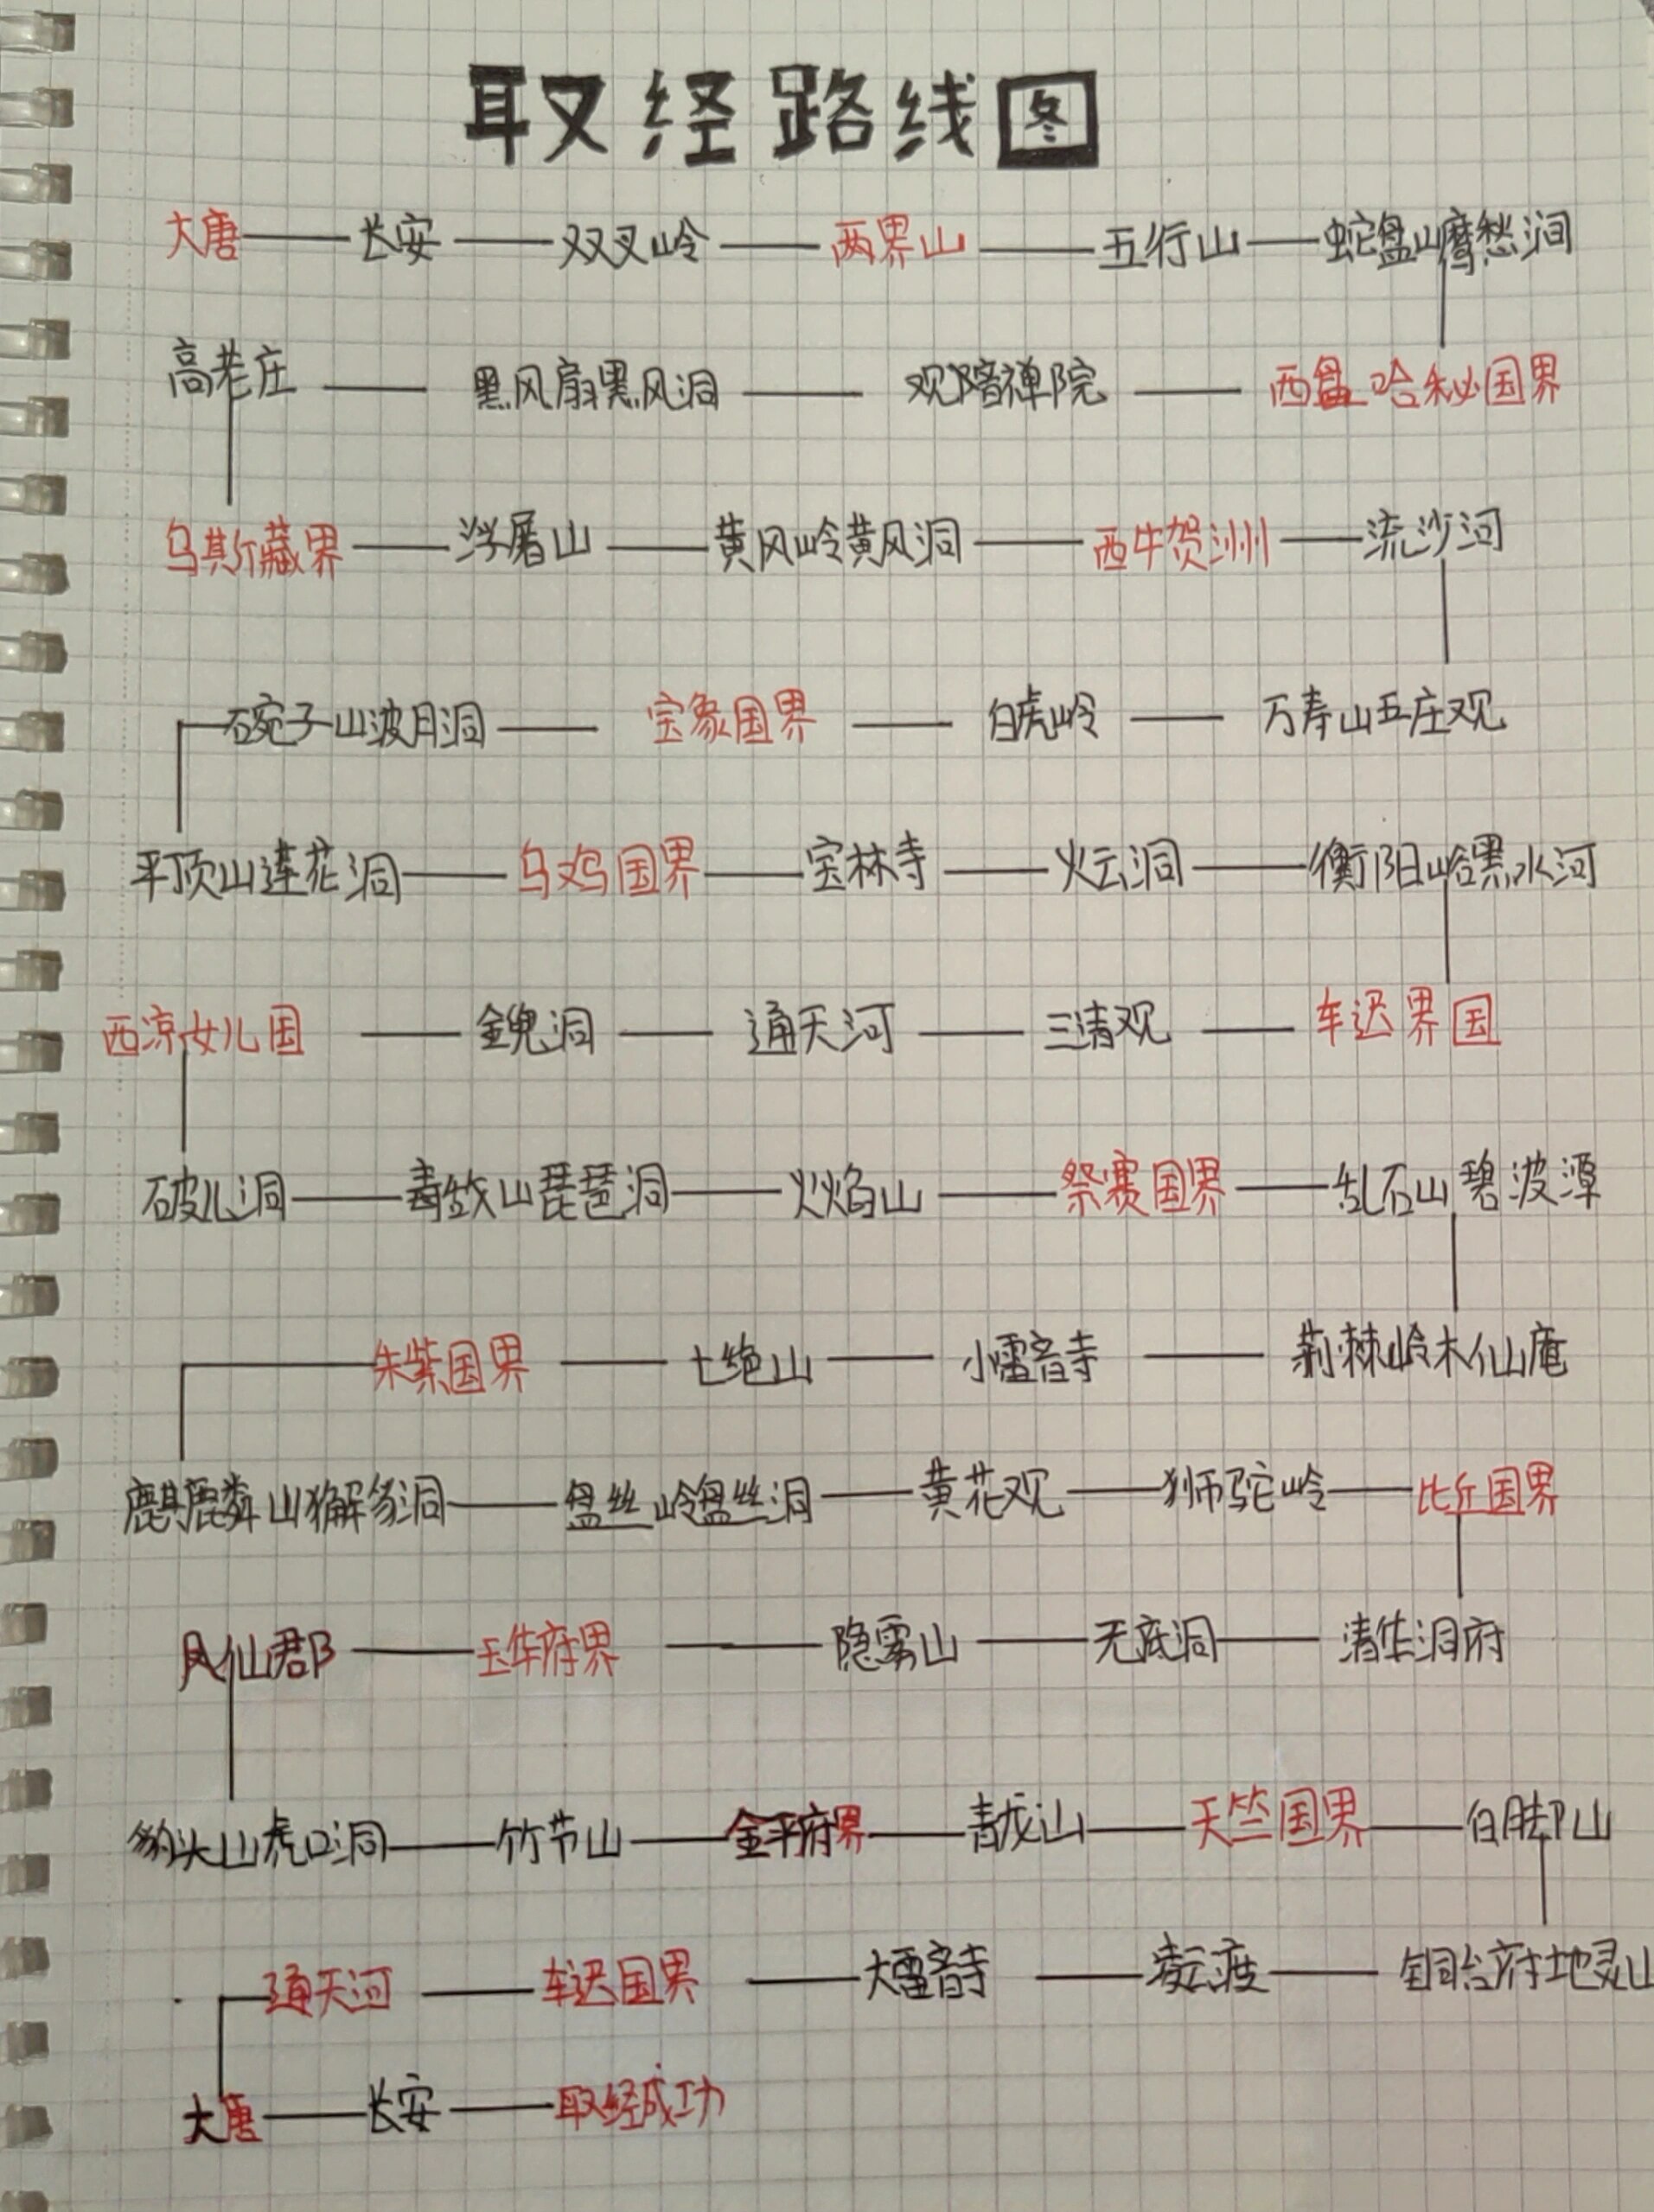 取经路线图
大唐——长安——双叉岭——两界山——五行山——蛇盘山鹰愁涧
高老庄——黑风扇黑风洞——观音禅院——西盘哈秘国界
乌斯藏界——浮屠山——黄风岭黄风洞——西牛贺洲——流沙河
碗子山波月洞——宝象国界——白虎岭——万寿山五庄观
平顶山莲花洞——乌鸡国界——宝林寺——火云洞——衡阳峪黑水河
西凉女儿国——金兜洞——通天河——三清观——车迟界国
破儿洞——毒敌山琵琶洞——火焰山——祭赛国界——乱石山碧波潭
朱紫国界——七绝山——小雷音寺——荆棘岭木仙庵
麒麟山獬豸洞——盘丝岭盘丝洞——黄花观——狮驼岭——比丘国界
凤仙郡——玉华府界——隐雾山——无底洞——清华洞府
豹头山虎口洞——竹节山——金平府界——青龙山——天竺国界——白脚山
通天河——车迟国界——大雷音寺——凌云渡——铜台府地灵山
大唐——长安——取经成功